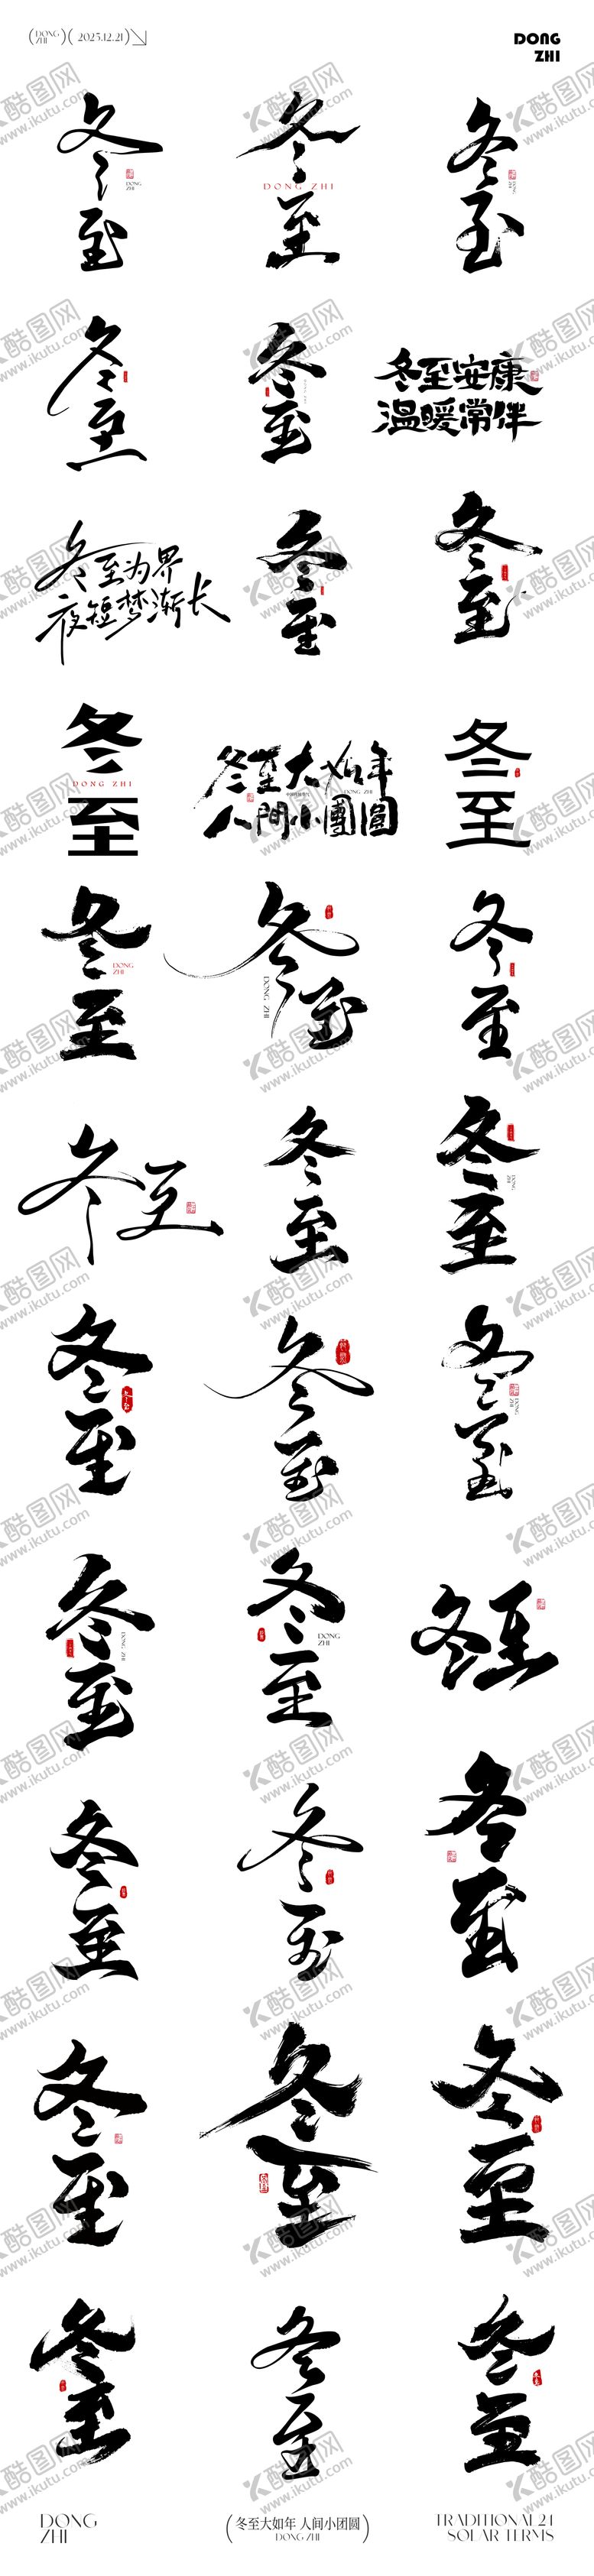 (DONG ZHI)( 2025.12.21)
DONG
ZHI
冬至
DONG
ZHI
冬至
DONG ZHI
冬至
DONG
ZHI
冬至
冬至
冬至安康
温暖常伴
冬至为界
夜短梦渐长
冬至
冬至
冬至
DONG ZHI
冬至大如年
人間小團圓
DONG ZHI
冬至
冬至
DONG
ZHI
冬至
DONG ZHI
冬至
冬至
冬至
冬至
DONG
ZHI
冬至
冬至
冬至
DONG
ZHI
冬至
DONG ZHI
冬至
DONG
ZHI
冬至
冬至
冬至
冬至
冬至
冬至
冬至
冬至
冬至
冬至
DONG
ZHI
(冬至大如年 人间小团圆)
DONG ZHI
TRADITIONAL 24
SOLAR TERMS
酷图网
www.ikutu.com